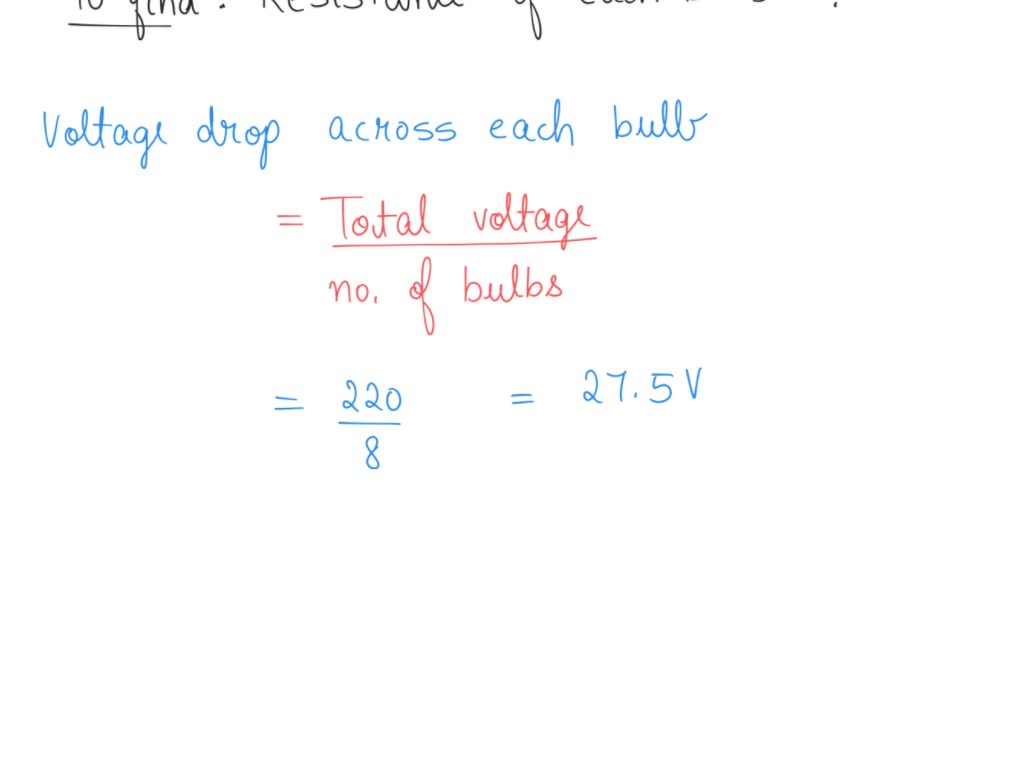 To find : Resistance of each
Voltage drop across each bulb
= Total voltage
no. of bulbs
= 220 = 27.5 V
8